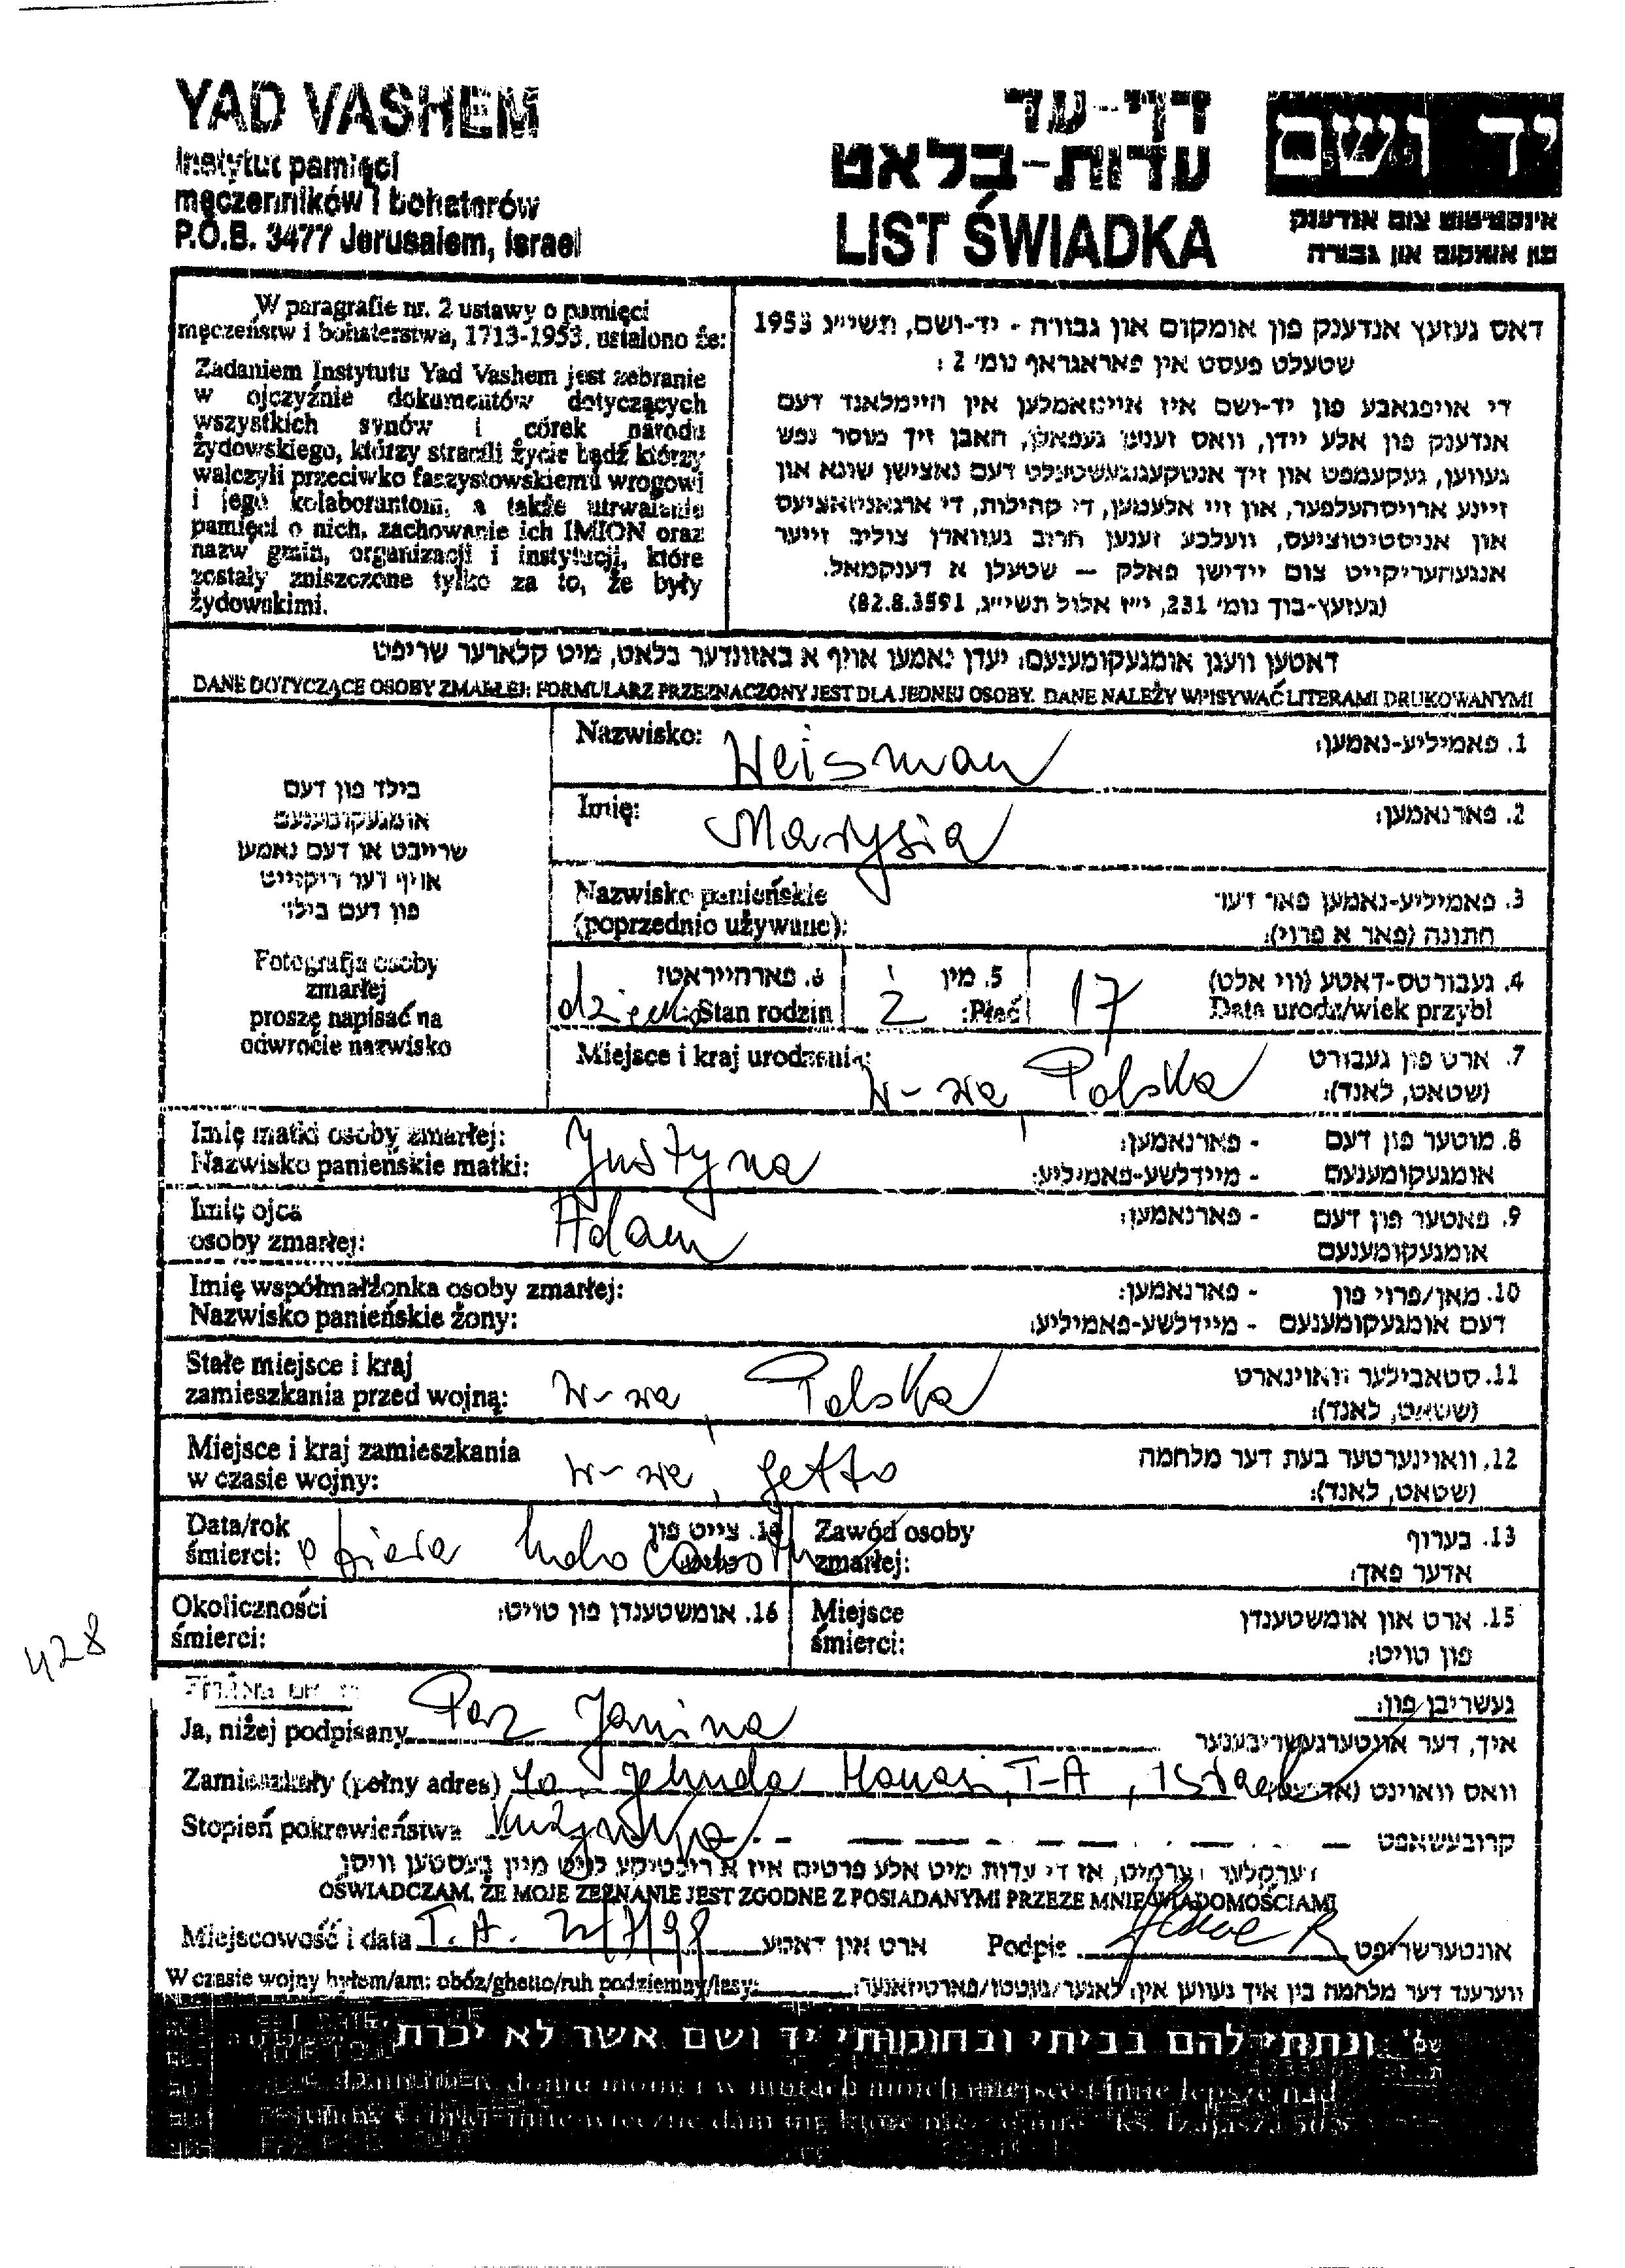 YAD VASHEM
Instytut pamięci
męczenników i bohaterów
P.O.B. 3477 Jerusalem, Israel
דף-עד
עדות-בלאט
LIST ŚWIADKA
יד ושם
אינסטיטוט צום אנדענק
פון אומקום און גבורה
W paragrafie nr. 2 ustawy o pamięci
męczeństw i bohaterstwa, 1713-1953, ustalono że:
Zadaniem Instytutu Yad Vashem jest zebranie
w ojczyźnie dokumentów dotyczących
wszystkich synów i córek narodu
żydowskiego, którzy stracili życie bądź którzy
walczyli przeciwko faszystowskiemu wrogowi
i jego kolaborantom, a także utrwalenie
pamięci o nich, zachowanie ich IMION oraz
nazw gmin, organizacji i instytucji, które
zostały zniszczone tylko za to, że były
żydowskimi.
דאס געזעץ אנדענק פון אומקום און גבורה - יד-ושם, תשי״ג 1953
שטעלט פעסט אין פאראגראף נומ׳ 2 :
די אויפגאבע פון יד-ושם איז איינזאמלען אין היימלאנד דעם
אנדענק פון אלע יידן, וואס זענען געפאלן, האבן זיך מוסר נפש
געווען, געקעמפט און זיך אנטקעגנגעשטעלט דעם נאצישן שונא און
זיינע ארויסהעלפער, און זיי אלעמען, די קהילות, די ארגאניזאציעס
און אינסטיטוציעס, וועלכע זענען חרוב געווארן צוליב זייער
אנגעהעריקייט צום יידישן פאלק – שטעלן א דענקמאל.
(געזעץ-בוך נומ׳ 231, י״ז אלול תשי״ג, 82.8.3591)
דאטען וועגן אומגעקומענעם: יעדן נאמען אויף א באזונדער בלאט, מיט קלארער שריפט
DANE DOTYCZĄCE OSOBY ZMARŁEJ: FORMULARZ PRZEZNACZONY JEST DLA JEDNEJ OSOBY. DANE NALEŻY WPISYWAĆ LITERAMI DRUKOWANYMI
בילד פון דעם
אומגעקומענעם
שרייבט אן דעם נאמען
אויף דער ריקזייט
פון דעם בילד
Fotografja osoby
zmarłej
proszę napisać na
odwrocie nazwisko
Nazwisko: Weisman 1. פאמיליע-נאמען:
Imię: Marysia 2. פארנאמען:
Nazwisko panieńskie 3. פאמיליע-נאמען פאר דער
(poprzednio używane): חתונה (פאר א פרוי):
4. געבורטס-דאטע (ווי אלט) 17 5. מין ż 6. פארהייראטז
Data urodz/wiek przybl Płeć: Stan rodzin dziecko
Miejsce i kraj urodzenia: W-wa, Polska 7. ארט פון געבורט
(שטאט, לאנד):
Imię matki osoby zmarłej: Justyna 8. מוטער פון דעם - פארנאמען:
Nazwisko panieńskie matki: אומגעקומענעם - מיידלשע-פאמיליע:
Imię ojca Adam 9. פאטער פון דעם - פארנאמען:
osoby zmarłej: אומגעקומענעם
Imię współmałżonka osoby zmarłej: 10. מאן/פרוי פון - פארנאמען:
Nazwisko panieńskie żony: דעם אומגעקומענעם - מיידלשע-פאמיליע:
Stałe miejsce i kraj 11. סטאבילער וואוינארט
zamieszkania przed wojną: W-wa, Polska (שטאט, לאנד):
Miejsce i kraj zamieszkania 12. וואוינערטער בעת דער מלחמה
w czasie wojny: W-wa, getto (שטאט, לאנד):
Data/rok 14. צייט פון Zawód osoby 13. בערוף
śmierci: ofiara holocaustu zmarłej: אדער פאך:
Okoliczności 16. אומשטענדן פון טויט: Miejsce 15. ארט און אומשטענדן
śmierci: śmierci: פון טויט:
428
געשריבן פון:
Ja, niżej podpisany Paz Janina איך, דער אונטערגעשריבענער
Zamieszkały (pełny adres) 40, Jehuda Hanasi, T-A, Israel וואס וואוינט
Stopień pokrewieństwa Kuzynka קרובעשאפט
דערקלער דערמיט, אז די עדות מיט אלע פרטים איז א ריכטיקע לויט מיין בעסטען וויסן
OŚWIADCZAM, ŻE MOJE ZEZNANIE JEST ZGODNE Z POSIADANYMI PRZEZE MNIE WIADOMOŚCIAMI
Miejscowość i data T.A. ארט און דאטע Podpis אונטערשריפט
W czasie wojny byłem/am: obóz/ghetto/ruh podziemny/lasy: ווערענד דער מלחמה בין איך געווען אין: לאגער/געטטו/פארטיזאנער:
ונתתי להם בביתי ובחומותי יד ושם אשר לא יכרת